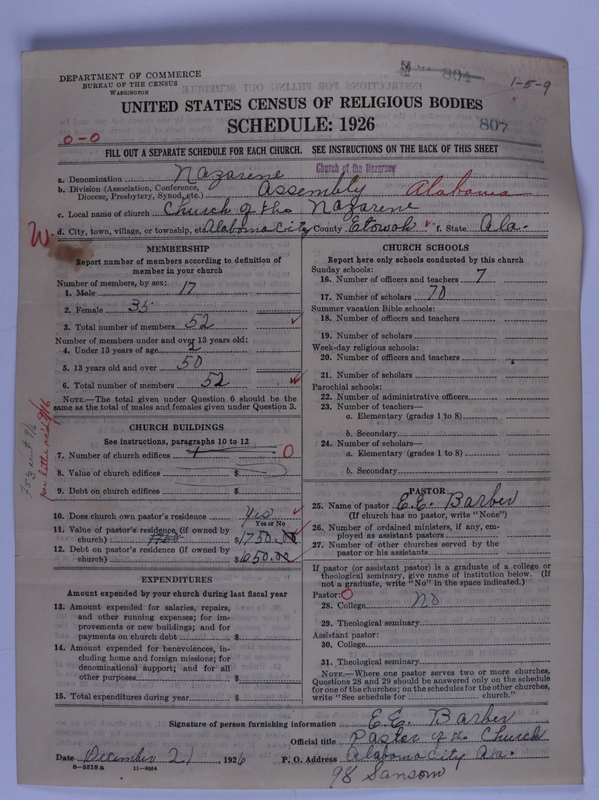 DEPARTMENT OF COMMERCE
BUREAU OF THE CENSUS
WASHINGTON
804
1-5-9
UNITED STATES CENSUS OF RELIGIOUS BODIES
SCHEDULE: 1926
807
0-0
FILL OUT A SEPARATE SCHEDULE FOR EACH CHURCH. SEE INSTRUCTIONS ON THE BACK OF THIS SHEET
Church of the Nazarene
a. Denomination Nazarene
b. Division (Association, Conference, Diocese, Presbytery, Synod, etc.) Assembly Alabama
c. Local name of church Church of the Nazarene
d. City, town, village, or township, etc. Alabama City County Etowah f. State Ala.
W.
MEMBERSHIP
Report number of members according to definition of
member in your church
Number of members, by sex:
1. Male 17
2. Female 35
3. Total number of members 52
Number of members under and over 13 years old:
4. Under 13 years of age 2
5. 13 years old and over 50
6. Total number of members 52
NOTE.—The total given under Question 6 should be the
same as the total of males and females given under Question 3.
CHURCH BUILDINGS
See instructions, paragraphs 10 to 12
7. Number of church edifices 1 0
8. Value of church edifices $
9. Debt on church edifices $
10. Does church own pastor's residence Yes
Yes or No
11. Value of pastor's residence (if owned by
church) 1750 $1750.00
12. Debt on pastor's residence (if owned by
church) $650.00
EXPENDITURES
Amount expended by your church during last fiscal year
13. Amount expended for salaries, repairs,
and other running expenses; for im-
provements or new buildings; and for
payments on church debt $
14. Amount expended for benevolences, in-
cluding home and foreign missions; for
denominational support; and for all
other purposes $
15. Total expenditures during year $
CHURCH SCHOOLS
Report here only schools conducted by this church
Sunday schools:
16. Number of officers and teachers 7
17. Number of scholars 70
Summer vacation Bible schools:
18. Number of officers and teachers
19. Number of scholars
Week-day religious schools:
20. Number of officers and teachers
21. Number of scholars
Parochial schools:
22. Number of administrative officers
23. Number of teachers—
a. Elementary (grades 1 to 8)
b. Secondary
24. Number of scholars—
a. Elementary (grades 1 to 8)
b. Secondary
PASTOR
25. Name of pastor E.E. Barber
(If church has no pastor, write "None")
26. Number of ordained ministers, if any, em-
ployed as assistant pastors
27. Number of other churches served by the
pastor or his assistants
If pastor (or assistant pastor) is a graduate of a college or
theological seminary, give name of institution below. (If
not a graduate, write "No" in the space indicated.)
Pastor: 0
28. College No
29. Theological seminary
Assistant pastor:
30. College
31. Theological seminary
NOTE.—Where one pastor serves two or more churches,
Questions 28 and 29 should be answered only on the schedule
for one of the churches; on the schedules for the other churches,
write "See schedule for church."
Signature of person furnishing information E.E. Barber
Official title Pastor of the Church
Date December 21, 1926 P. O. Address Alabama City Ala.
8-5518a 11-9054
98 Sansom